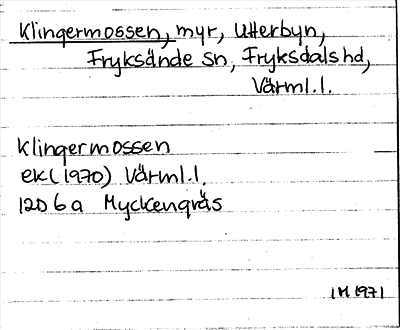 Klingermossen, myr, Utterbyn,
Fryksände Sn, Fryksdals hd,
Värml.l.
Klingermossen
ek(1970) Värml.l.
12D 6a Myckengräs
IH 1971